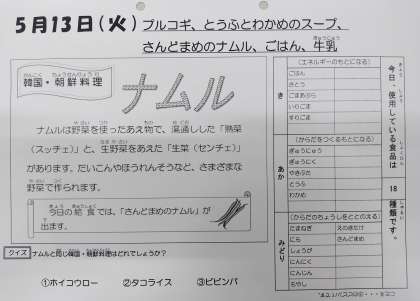 5月13日(火) プルコギ、とうふとわかめのスープ、
さんどまめのナムル、ごはん、牛乳
韓国・朝鮮料理
ナムル
ナムルは野菜を使ったあえ物で、湯通しした「熟菜
(スッチェ)」と、生野菜をあえた「生菜(センチェ)」
があります。だいこんやほうれんそうなど、さまざまな
野菜で作られます。
今日の給食では、「さんどまめのナムル」が
出ます。
クイズ
ナムルと同じ韓国・朝鮮料理はどれでしょうか?
①ホイコウロー ②タコライス ③ビビンバ
き
(エネルギーのもとになる)
ごはん
さとう
ごまあぶら
いりごま
すりごま
あか
(からだをつくるもとになる)
ぎゅうにゅう
ぎゅうにく
やきぶた
とうふ
わかめ
みどり
(からだのちょうしをととのえる)
たまねぎ えのきだけ
にら さんどまめ
しょうが
にんにく
にんじん
もやし
今日、使用している食品は 18 種類です。